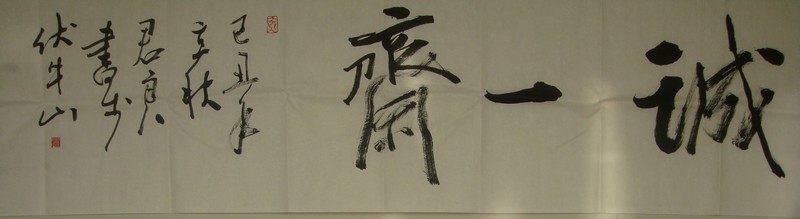 誠一齋
己丑年
亥秋
君良
書於
伏牛山